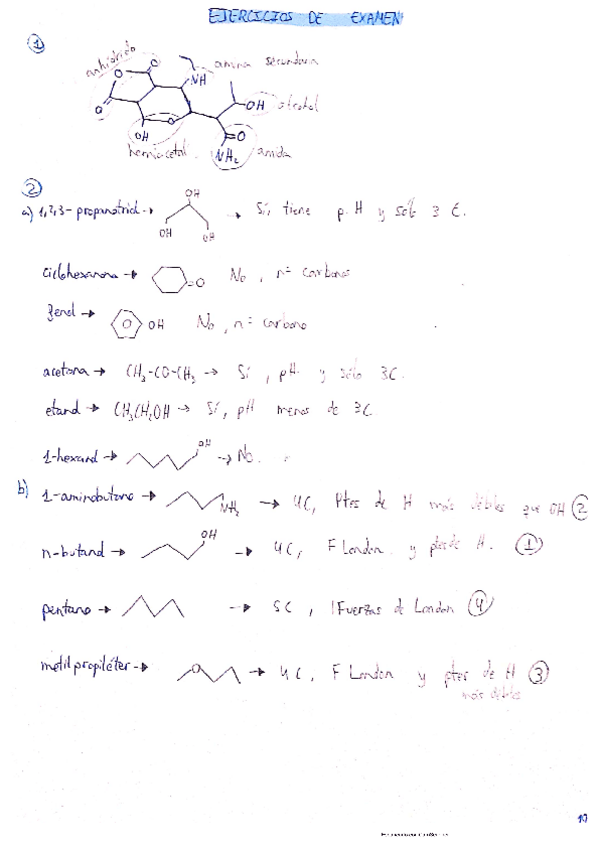 EJERCICIOS DE EXAMEN
1
anhídrido
O O O
NH amina secundaria
OH alcohol
OH O
hemiacetal
O
NH2 amida
2
a) 1,2,3-propanotriol → OH OH OH → Sí, tiene p. H y sólo 3 C.
ciclohexanona → =O No, nº carbonos
fenol → OH No, nº carbono
acetona → CH3-CO-CH3 → Sí, pH y sólo 3C.
etanol → CH3CH2OH → Sí, pH menos de 3C
1-hexanol → OH → No.
b) 1-aminobutano → NH2 → 4C, Ptes de H más débiles que OH 2
n-butanol → OH → 4C, F London y ptes de H. 1
pentano → → 5C, Fuerzas de London 4
metilpropiléter → O → 4C, F London y ptes de H 3
más débiles